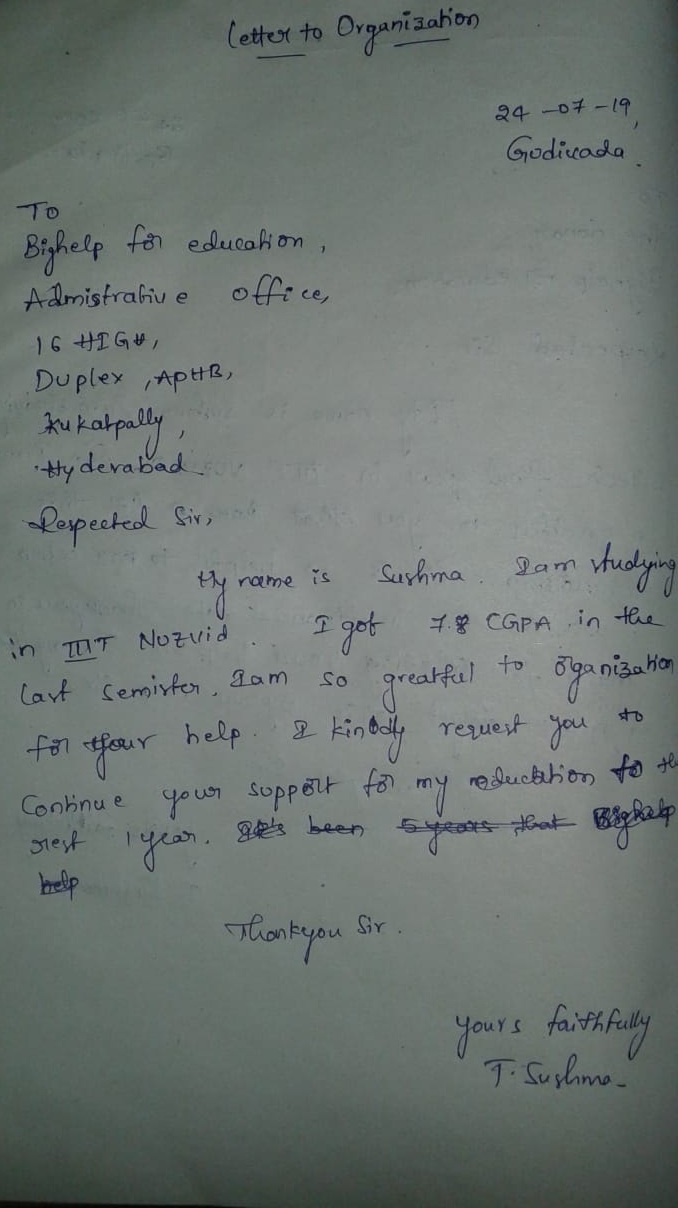 Letter to Organization
24-07-19,
Gudivada.
To
Bighelp for education,
Admistrative office,
16 HIGH,
Duplex, APHB,
Kukatpally,
Hyderabad
Respected Sir,
My name is Sushma. Iam studying
in IIIT Nuzvid. I got 7.8 CGPA in the
last semister. Iam so greatful to organization
for your help. I kindly request you to
Continue your support for my eduction to the
rest 1 year. It's been 5 years that Bighelp
help
Thankyou Sir.
yours faithfully
T. Sushma